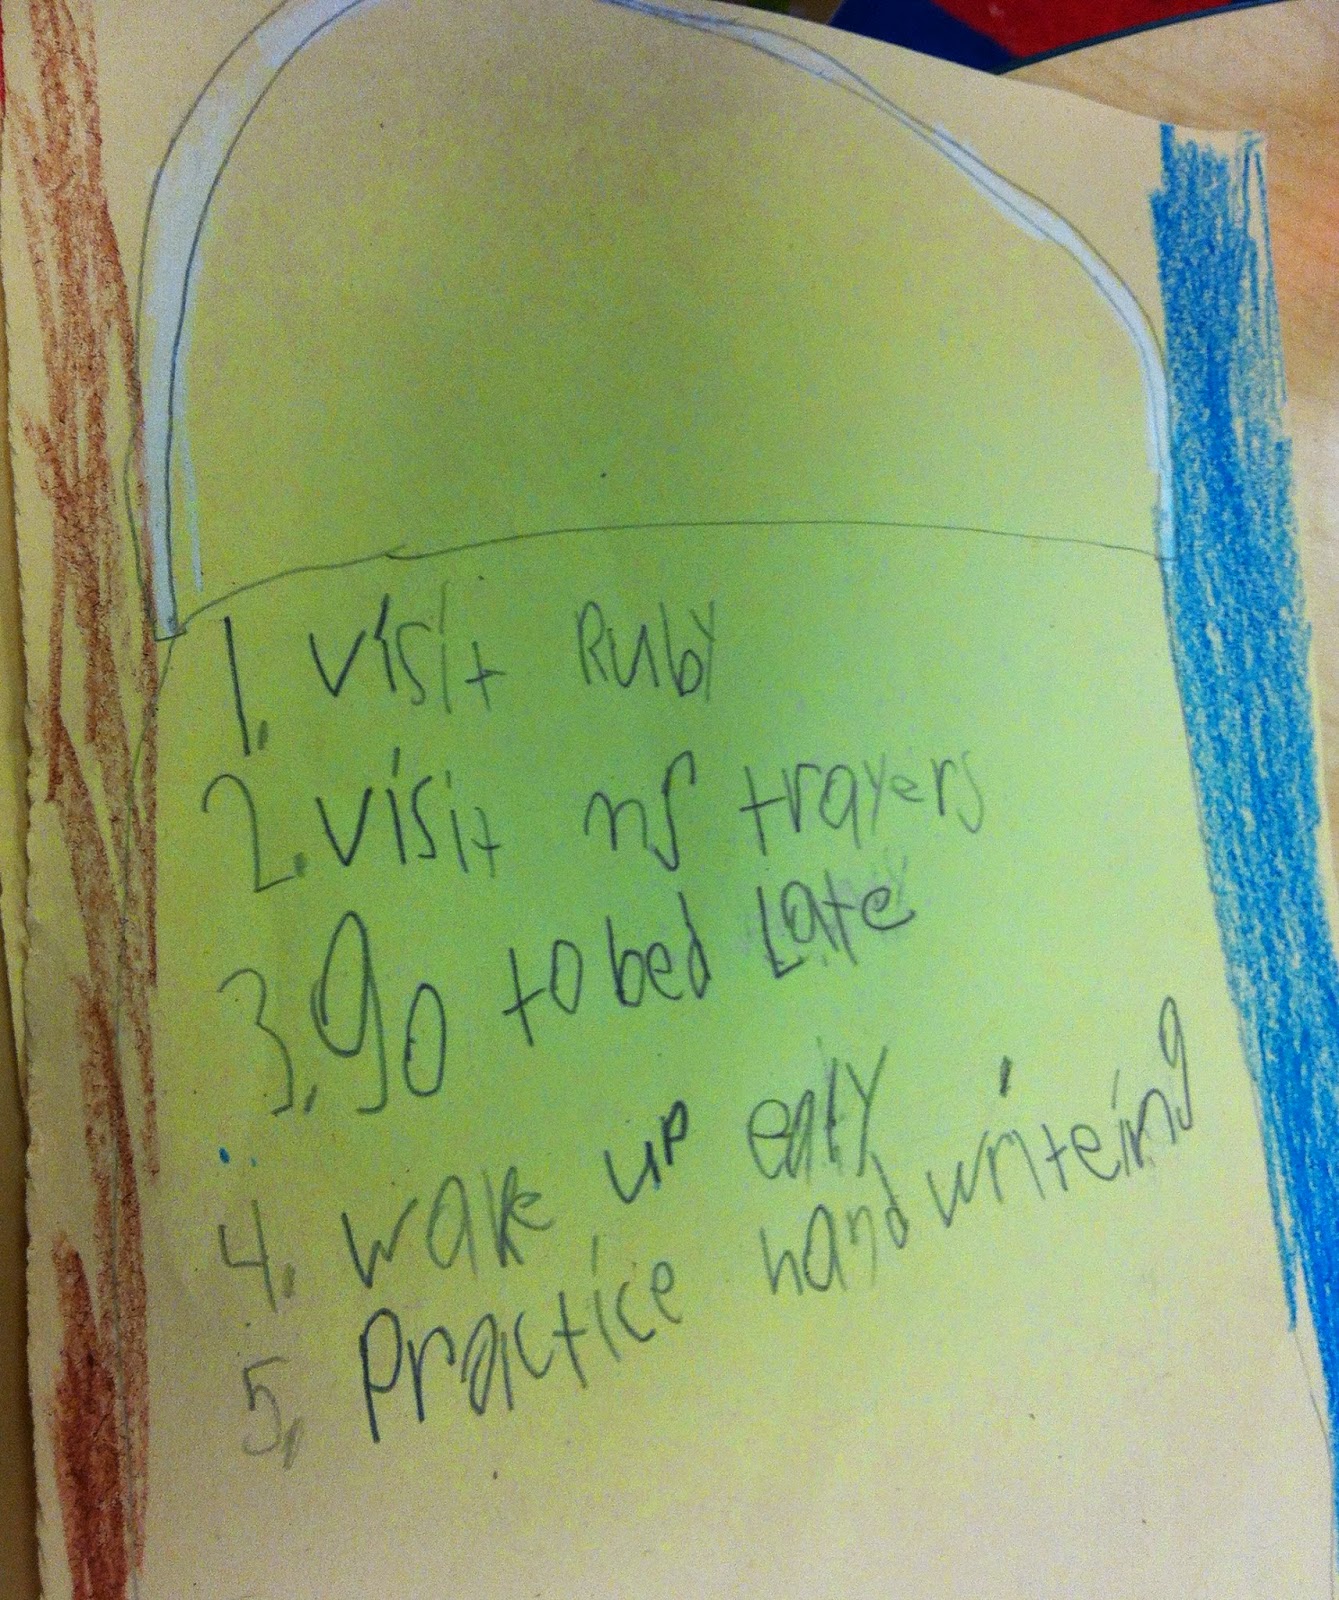 1. visit Ruby
2. visit ms trayers
3. go to bed Late
4. wake up ealy
5. Practice hand writeing